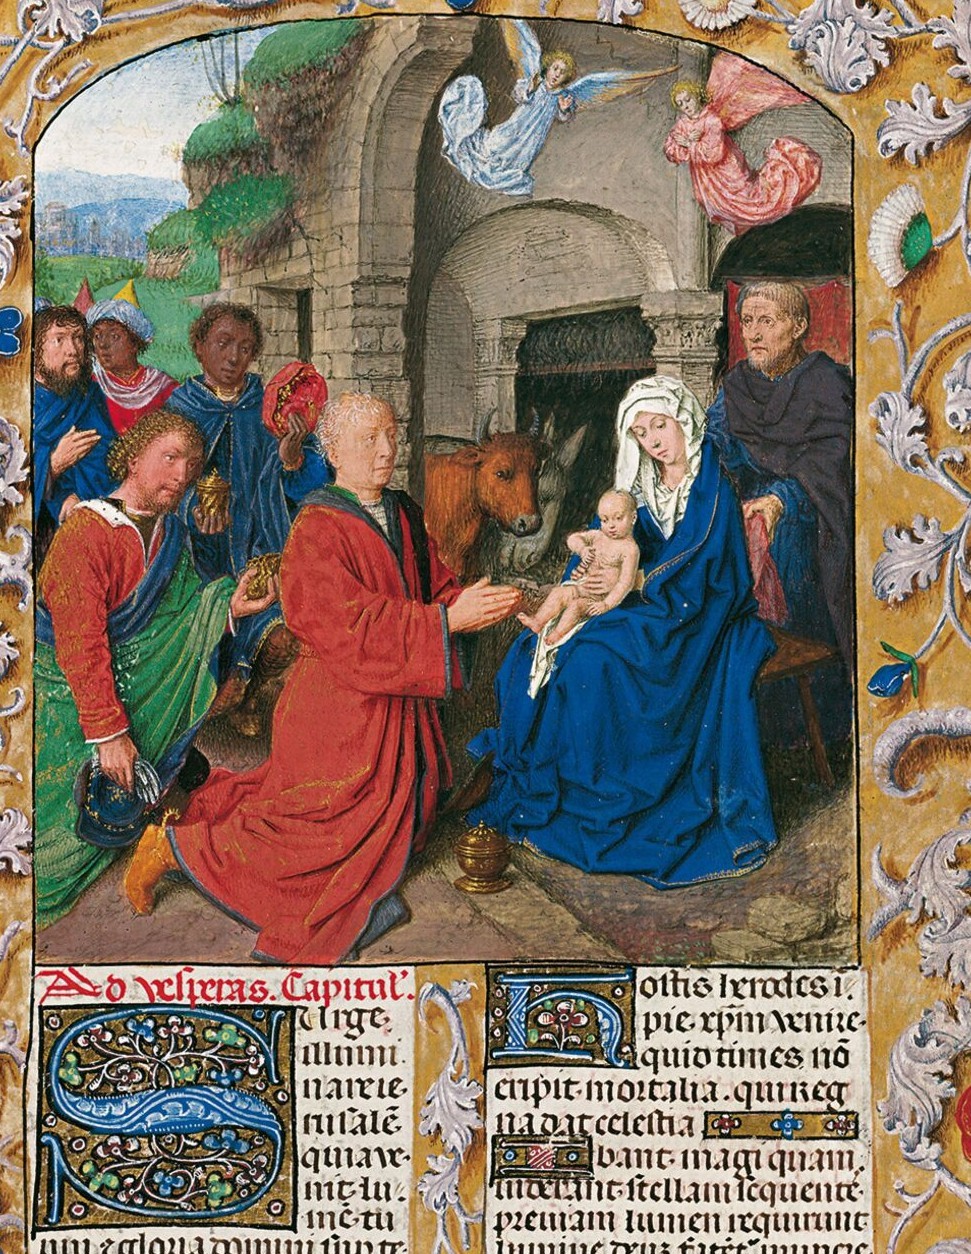 Ad vesperas. Capitul'.
Surge,
illumi
na ieie-
rusalē
quia ve-
nit lu-
mē tu
um ⁊ gloria domini sup te
Hostis herodes i.
pie. xp̄m venire.
quid times nō
eripit mortalia. qui reg
na dat celestia
Ibant magi quam
viderant stellam sequente.
previam lumen requirunt
lumine